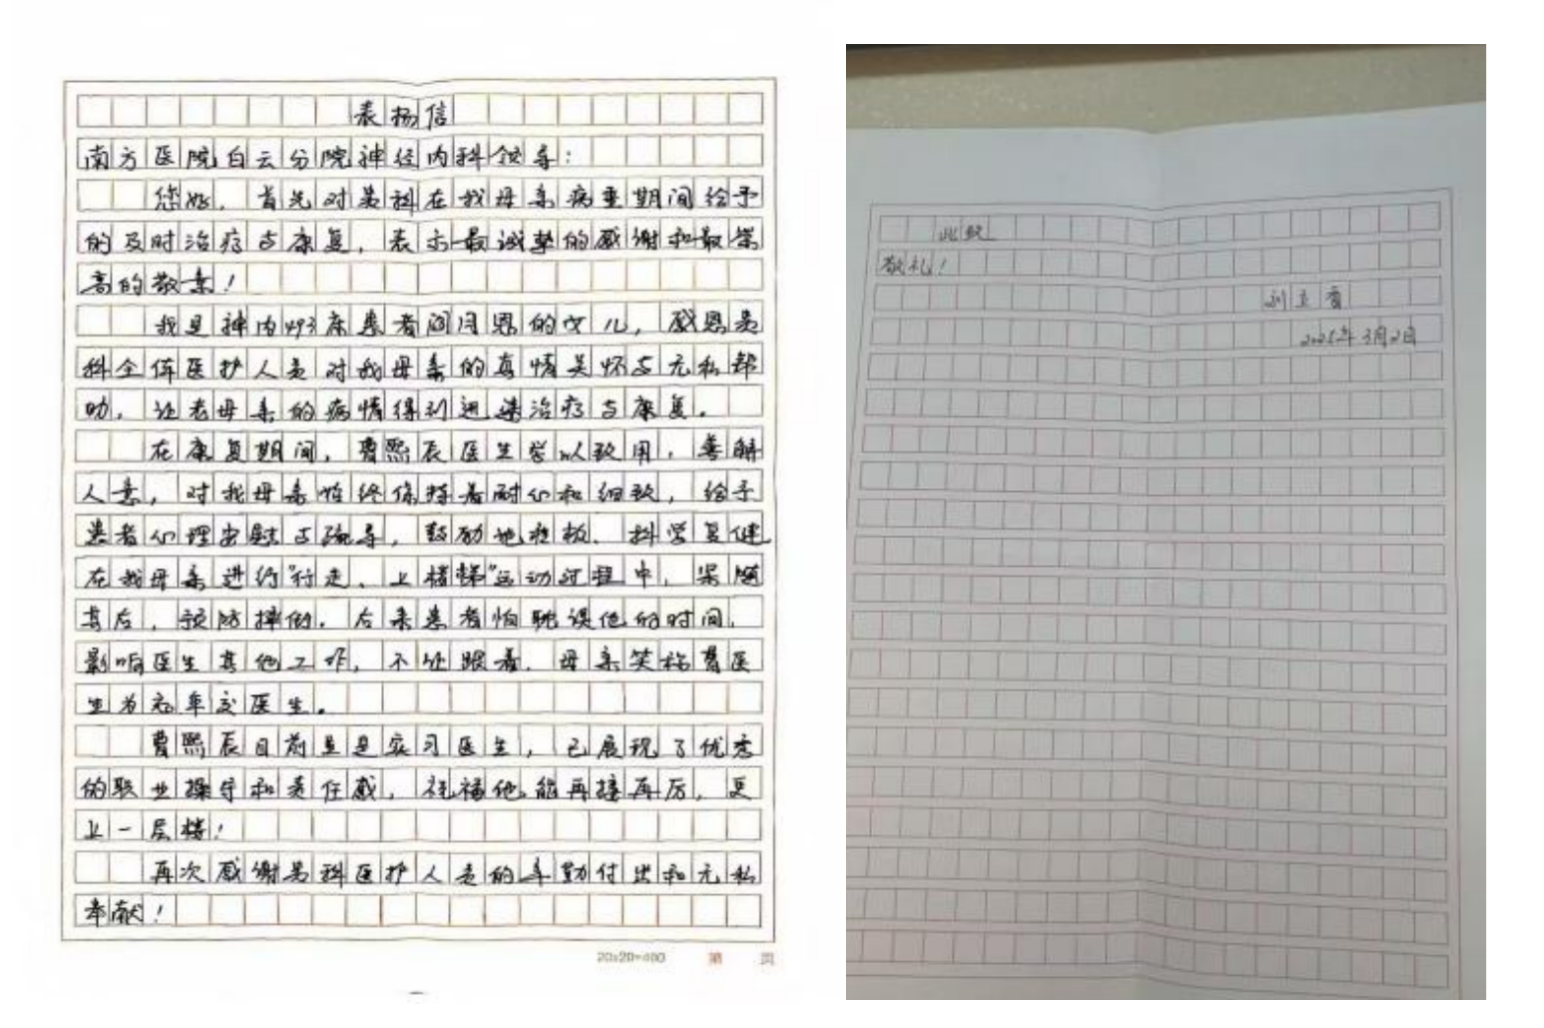 表扬信
南方医院白云分院神经内科领导:
您好,首先对贵科在我母亲病重期间给予
的及时治疗与康复,表示最诚挚的感谢和最崇
高的敬意!
我是神内493床患者闫月恩的女儿,感恩贵
科全体医护人员对我母亲的真情关怀与无私帮
助,让老母亲的病情得到迅速治疗与康复。
在康复期间,曹熙辰医生学以致用,善解
人意,对我母亲始终保持着耐心和细致,给予
患者心理安慰与疏导,鼓励她积极、科学复健
在我母亲进行"行走、上楼梯"运动过程中,紧随
其后,预防摔倒。后来患者怕耽误他的时间,
影响医生其他工作,不让跟着,母亲笑称曹医
生为忘年交医生。
曹熙辰目前虽是实习医生,已展现了优秀
的职业操守和责任感,祝福他能再接再厉,更
上一层楼!
再次感谢贵科医护人员的辛勤付出和无私
奉献!
20x20=400 第 页
此致
敬礼!
刘立香
2025年3月2日